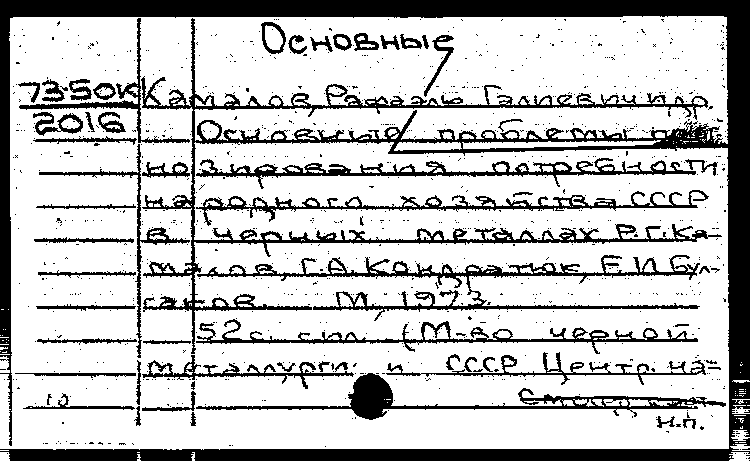 Основные
73-50К Камалов, Рафаэль Галиевич и др.
2016 Основные проблемы прог-
нозирования потребности
народного хозяйства СССР
в черных металлах Р.Г. Ка-
малов, Г.А. Кондратюк, Е.И. Бул-
гаков. М, 1973.
52 с. с ил. (М-во черной
металлурги и СССР Центр. на-
10
н.п.